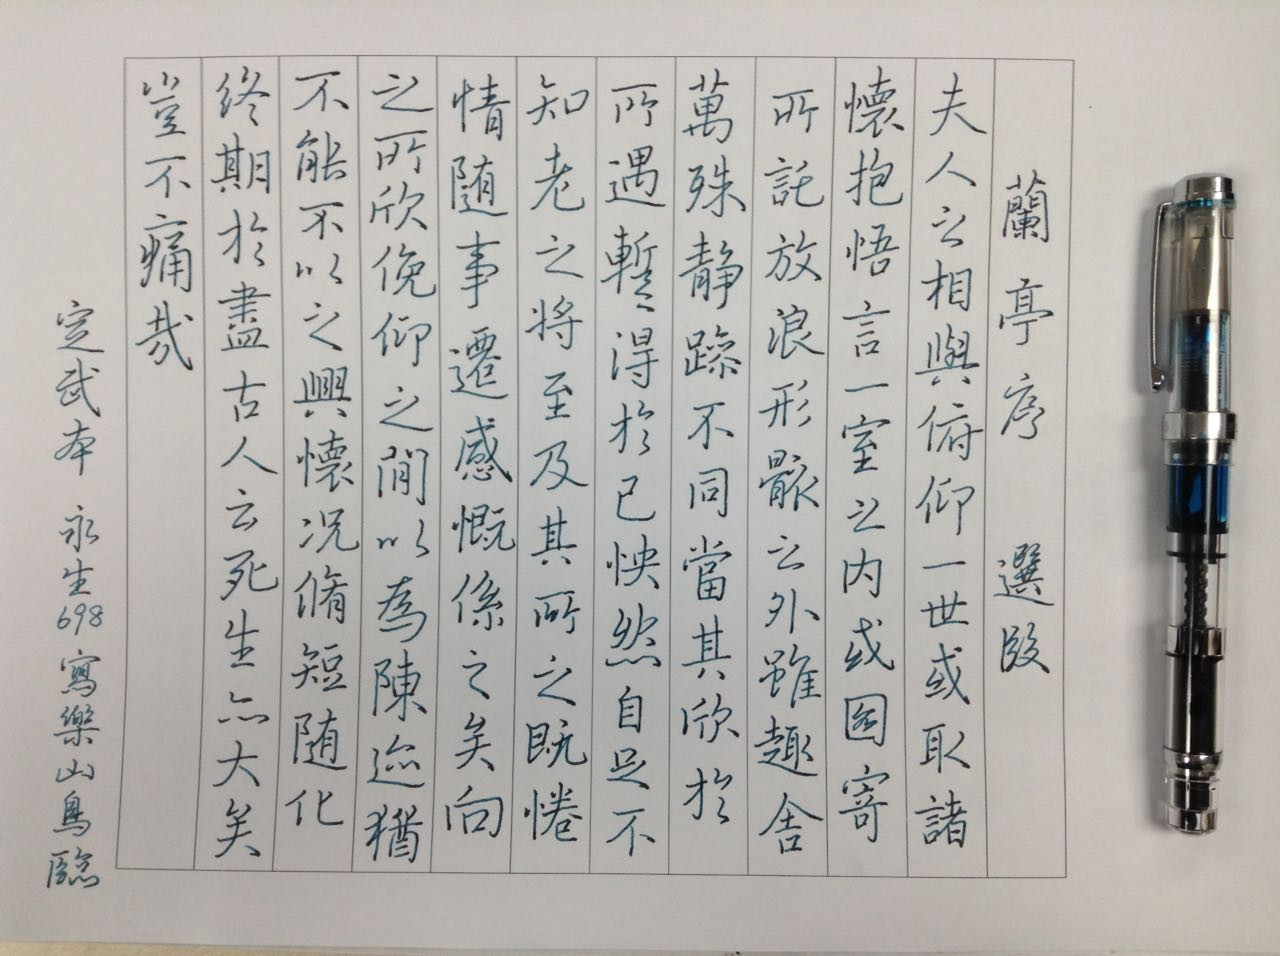 蘭亭序 選段
夫人之相與俯仰一世或取諸
懷抱悟言一室之内或因寄
所託放浪形骸之外雖趣舍
萬殊静躁不同當其欣於
所遇暫得於己怏然自足不
知老之将至及其所之既惓
情随事遷感慨係之矣向
之所欣俛仰之間以為陳迹猶
不能不以之興懷况脩短随化
終期於盡古人云死生亦大矣
豈不痛哉
定武本 永生698寫樂山鳥臨